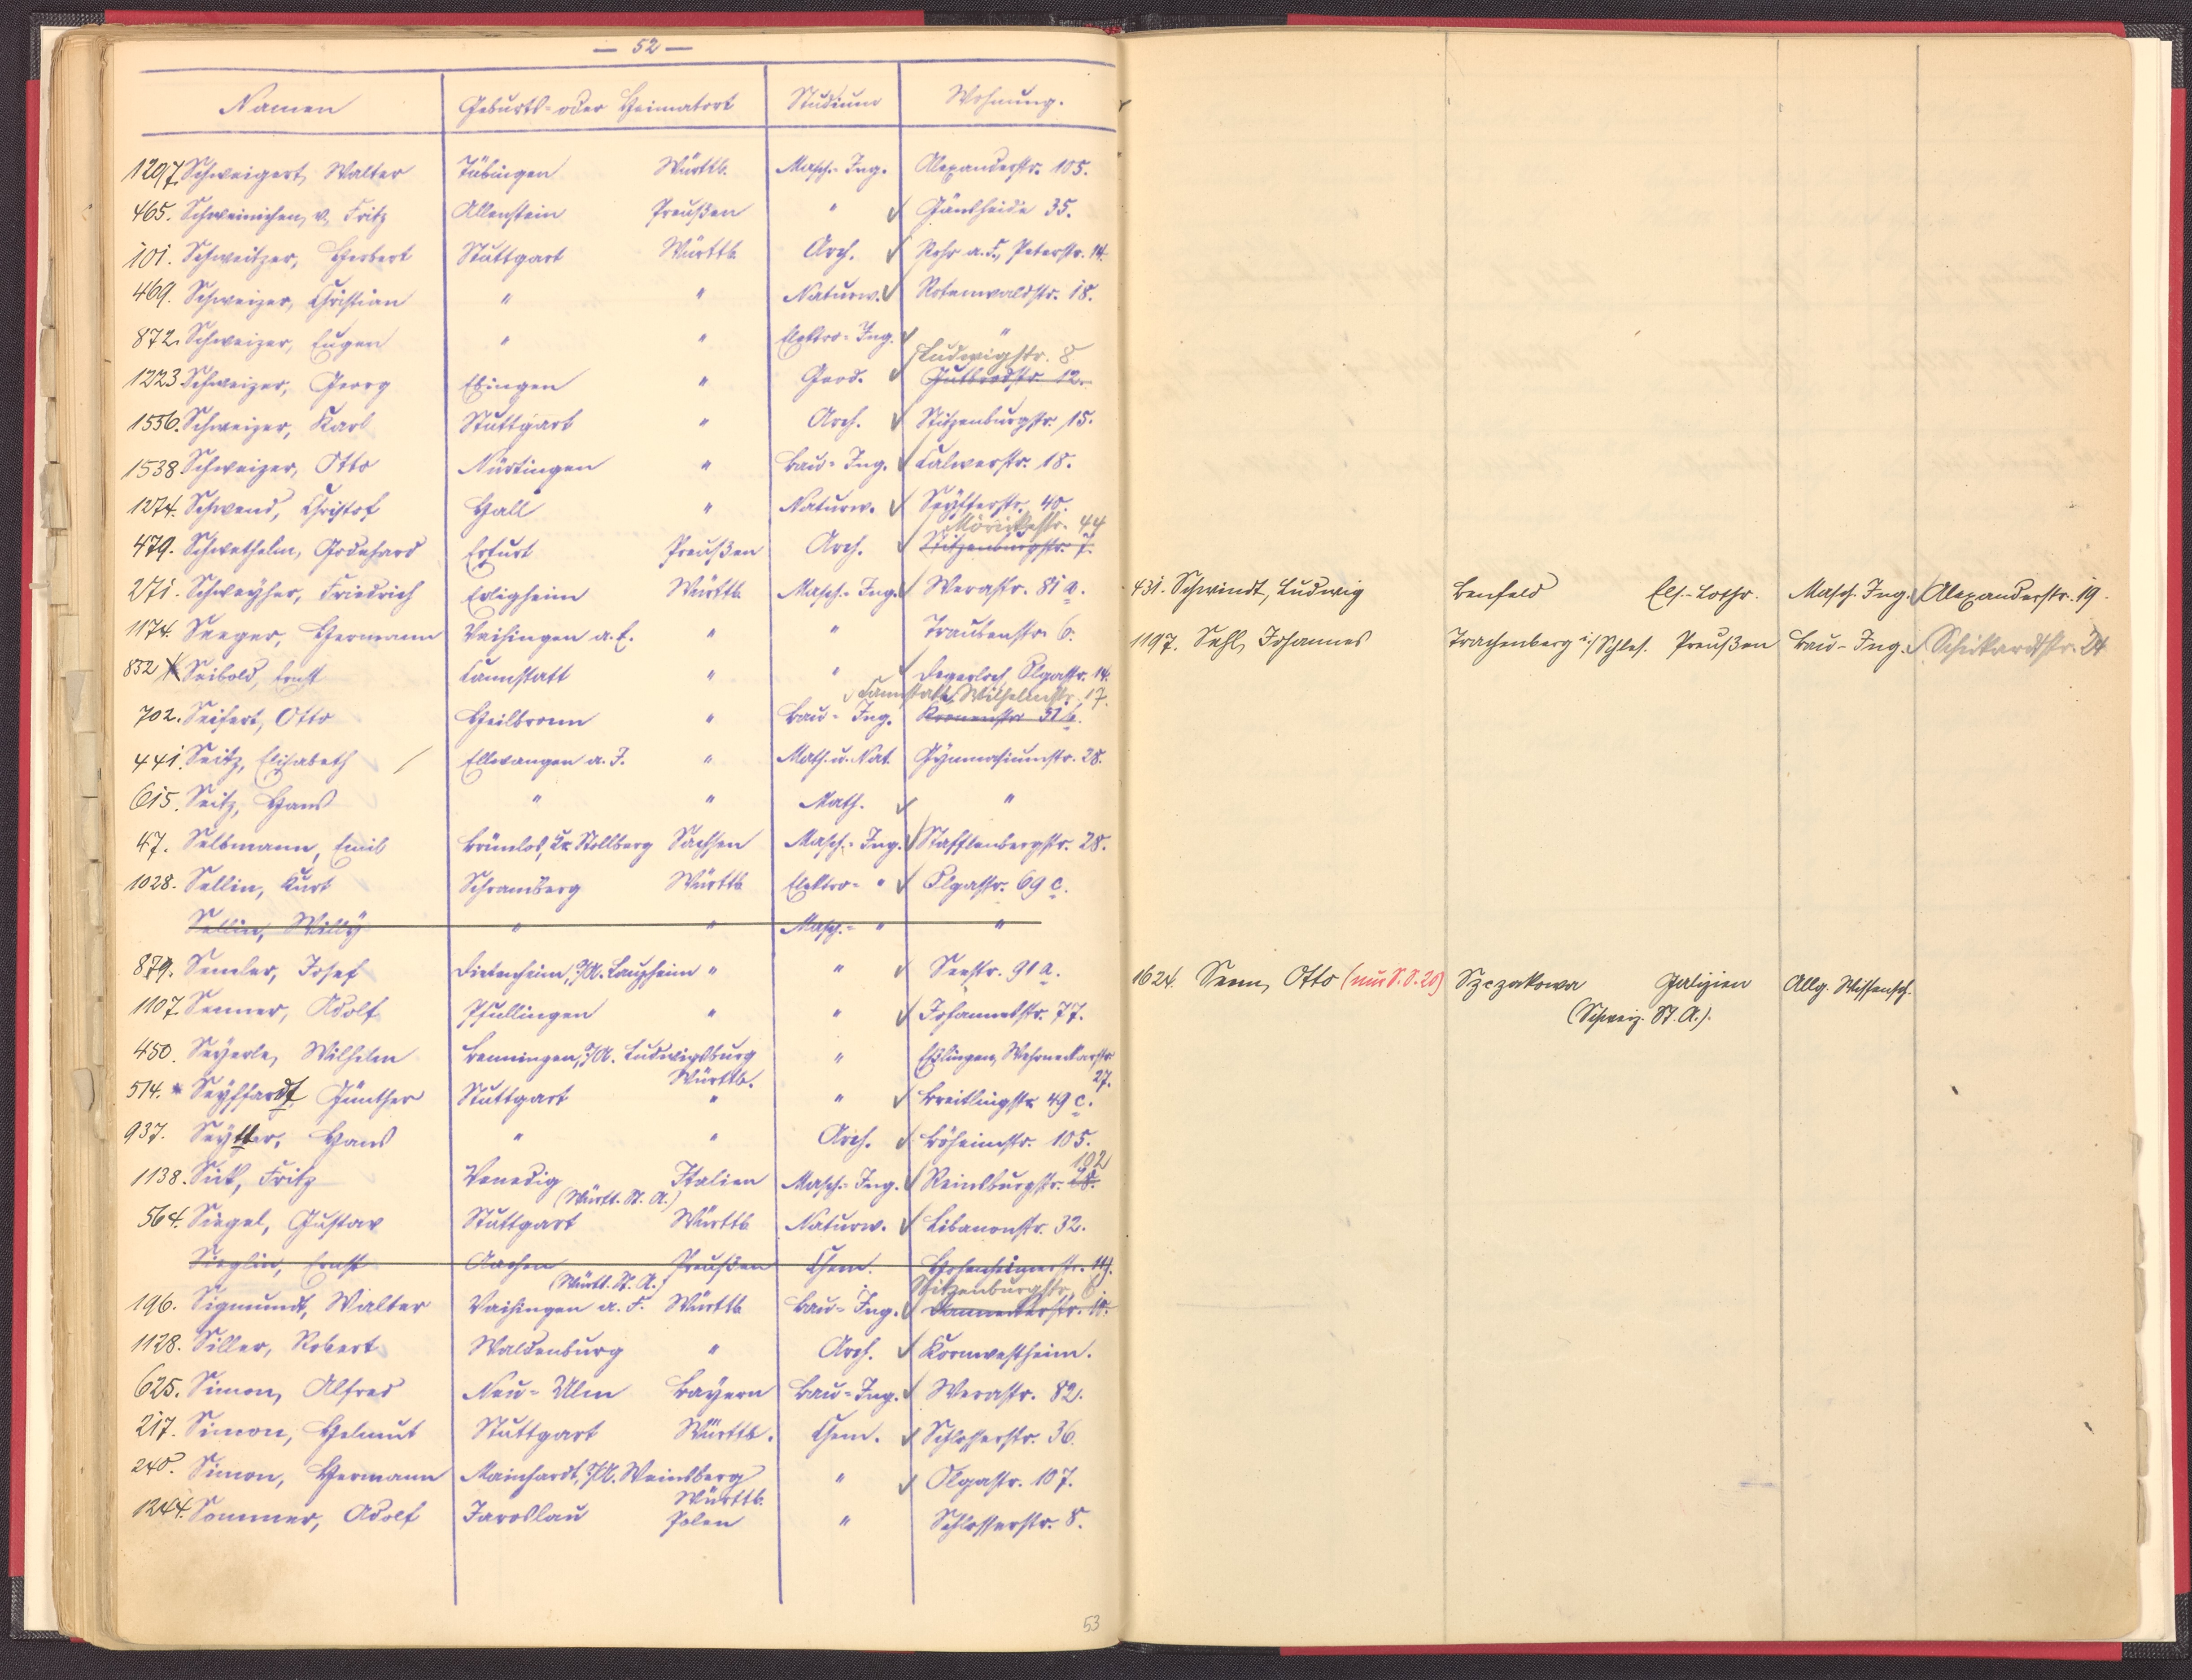 — 52 —
Namen Geburts- oder Heimatort Studium Wohnung.
1297. Schweigert, Walter Tübingen Württb. Masch.-Ing. Alexanderstr. 105.
465. Schweinichen, v. Fritz Allenstein Preußen " Gänsheide 35.
101. Schweitzer, Herbert Stuttgart Württb. Arch. Rohr a. F., Peterstr. 14.
469. Schweizer, Christian " " Naturw. Rotenwaldstr. 18.
872. Schweizer, Eugen " " Elektro-Ing. "
Ludwigstr. 8
1223. Schweizer, Georg Ebingen " Geod. Gutbrodstr. 12.
1556. Schweizer, Karl Stuttgart " Arch. Stitzenburgstr. 15.
1538. Schweizer, Otto Nürtingen " Bau-Ing. Calwerstr. 18.
1274. Schwend, Christof Hall " Naturw. Seyfferstr. 40.
Mörickestr. 44
479. Schwethelm, Godehard Erfurt Preußen Arch. Stitzenburgstr. 7.
271. Schweyher, Friedrich Erligheim Württb. Masch.-Ing. Werastr. 81 a.
1174. Seeger, Hermann Vaihingen a. E. " " Traubenstr. 6.
832 Seibold, Ernst Cannstatt " " Degerloch, Olgastr. 14.
Cannstatt, Wilhelmstr. 17.
702. Seifert, Otto Heilbronn " Bau-Ing. Kronenstr. 51 b.
441. Seitz, Elisabeth Ellwangen a. J. " Math. u. Nat. Gymnasiumstr. 28.
615. Seitz, Hans " " Math. "
47. Selbmann, Emil Brünlos, Kr. Stollberg Sachsen Masch.-Ing. Stafflenbergstr. 28.
1028. Sellin, Kurt Schramberg Württb. Elektro- " Olgastr. 69 c.
Sellin, Willy " " Masch.- " "
879. Semler, Josef Dietenheim, O/A. Laupheim " " Seestr. 91 a.
1107. Senner, Adolf Pfullingen " " Johannesstr. 77.
450. Seyerle, Wilhelm Benningen, O/A. Ludwigsburg " Eßlingen, Wehrneckarstr.
Württb. 27.
514. * Seyffardt, Günther Stuttgart " " Breitlingstr. 49 c.
937. Seytter, Hans " " Arch. Böheimstr. 105.
102
1138. Sick, Fritz Venedig Italien Masch.-Ing. Reinsburgstr. 28.
(Württ. St. A.)
564. Siegel, Gustav Stuttgart Württb. Naturw. Libanonstr. 32.
Sieglin, Ernst Aachen Preußen Chem. Hohenheimerstr. 14.
(Württ. St. A.) Stitzenburgstr. 6
196. Sigmundt, Walter Vaihingen a. F. Württb. Bau-Ing. Danneckerstr. 10.
1128. Siller, Robert Waldenburg " Arch. Kornwestheim.
625. Simon, Alfred Neu-Ulm Bayern Bau-Ing. Werastr. 82.
217. Simon, Helmut Stuttgart Württb. Chem. Schlosserstr. 36.
240. Simon, Hermann Mainhardt, O/A. Weinsberg " Olgastr. 107.
Württb.
1244. Sommer, Adolf Jaroslau Polen " Schlosserstr. 8.
53
431. Schwindt, Ludwig Benfeld Els.-Lothr. Masch. Ing. Alexanderstr. 19.
1197. Sehl, Johannes Trachenberg i/Schles. Preußen Bau-Ing. Schickardtstr. 24
1624. Senn, Otto (nur S. S. 20) Szczakowa Galizien Allg. Wissensch.
(Schweiz. St. A.).